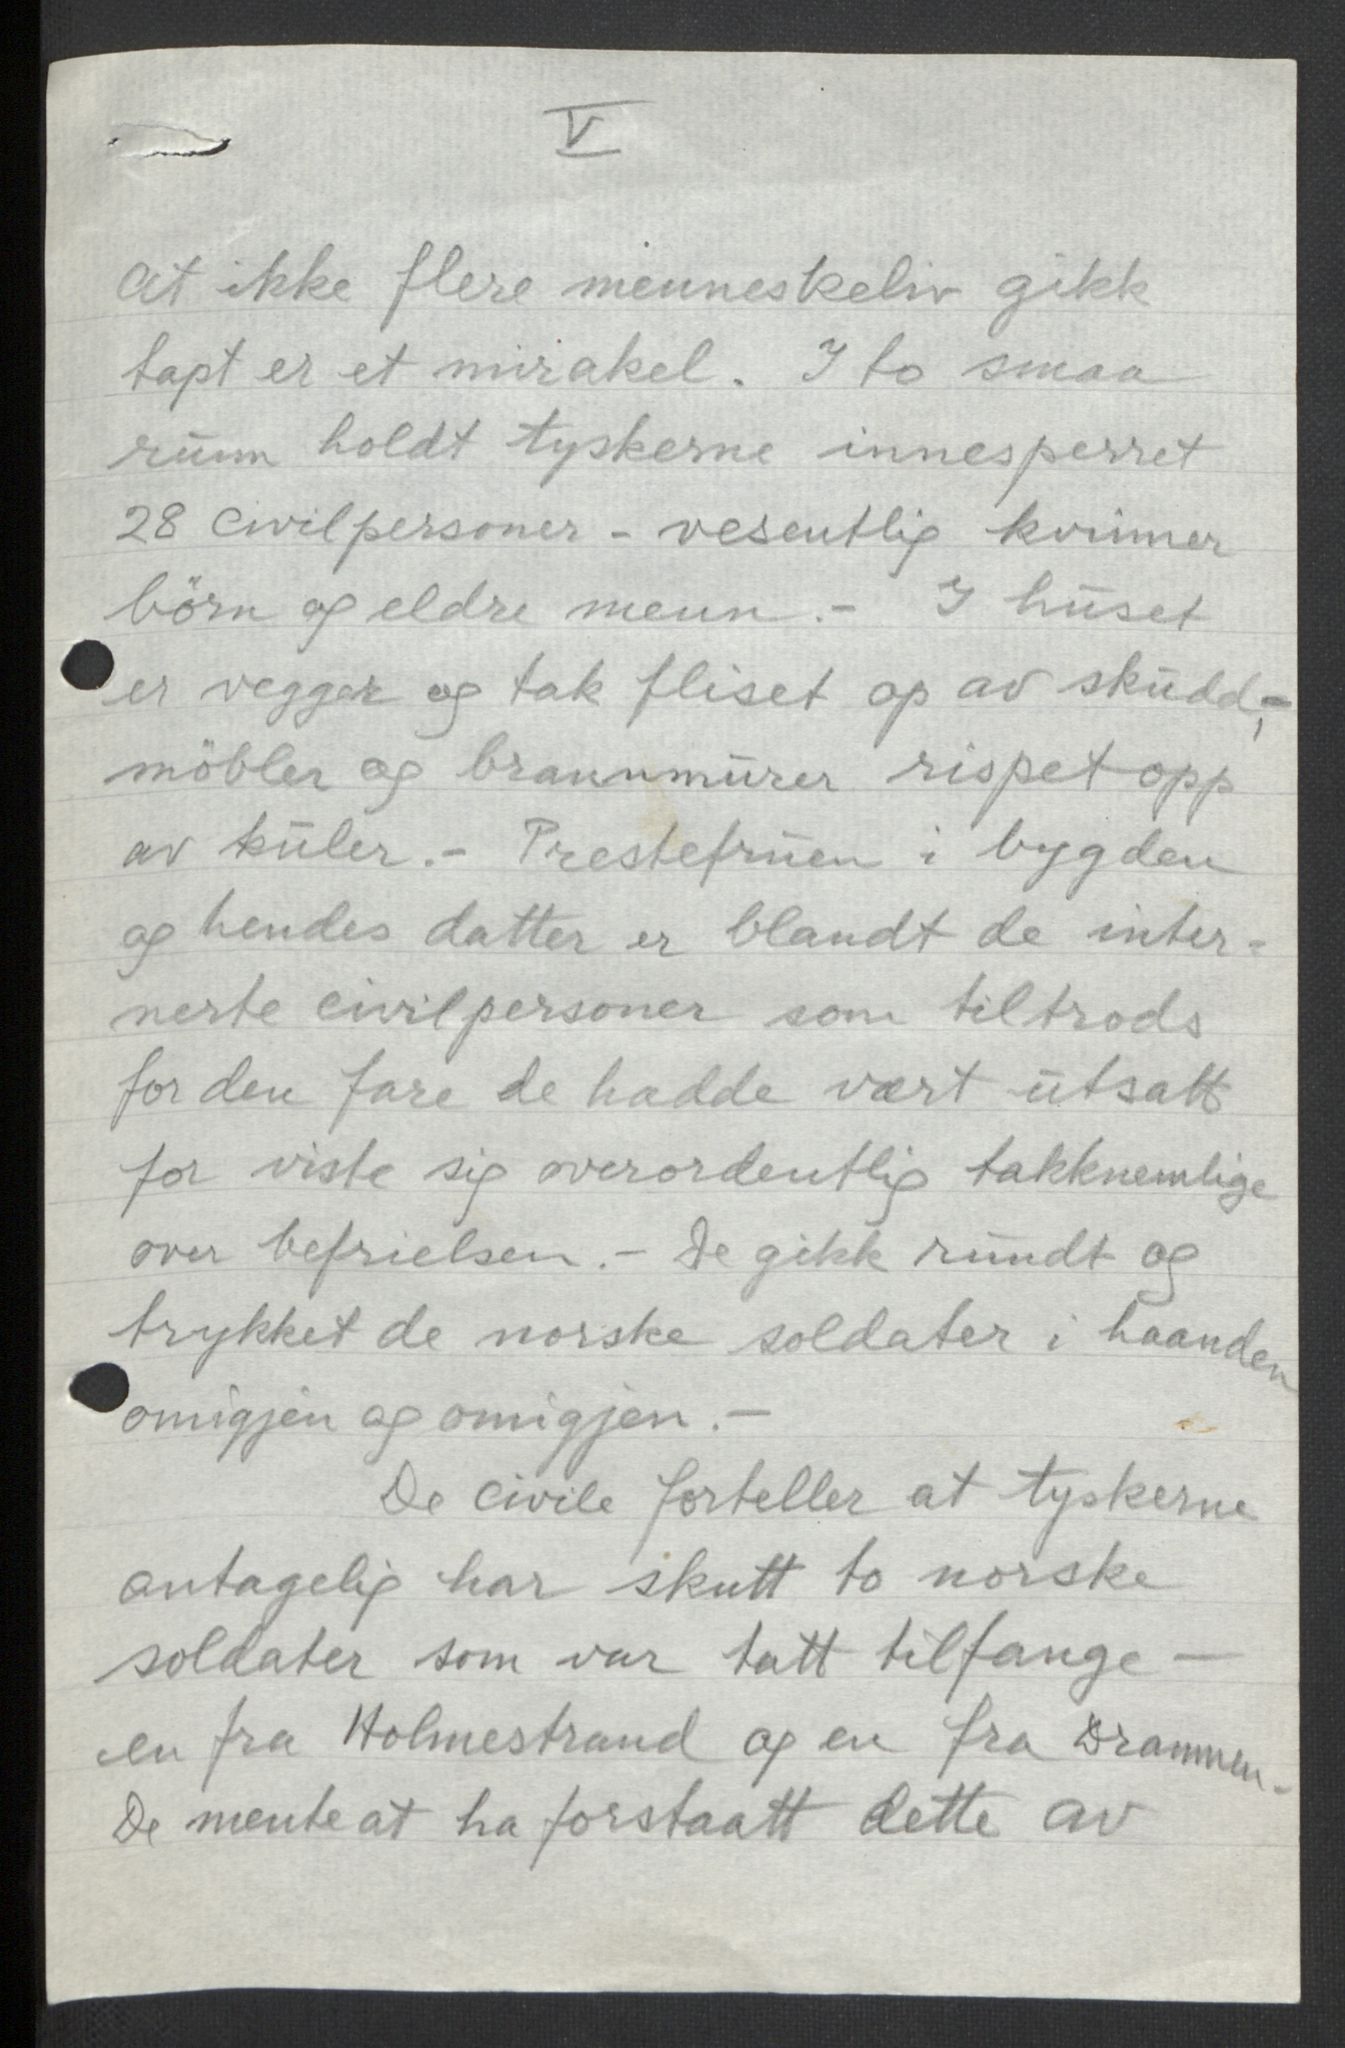 V
At ikke flere menneskeliv gikk
tapt er et mirakel. I to smaa
rum holdt tyskerne innesperret
28 civilpersoner - vesentlig kvinner
börn og eldre menn. - I huset
er vegger og tak fliset op av skudd,-
möbler og brannmurer rispet opp
av kuler. - Prestefruen i bygden
og hendes datter er blandt de inter-
nerte civilpersoner som tiltrods
for den fare de hadde vært utsatt
for viste sig overordentlig takknemlige
over befrielsen. - De gikk rundt og
trykket de norske soldater i haanden
omigjen og omigjen. -
De civile forteller at tyskerne
antagelig har skutt to norske
soldater som var tatt tilfange -
en fra Holmestrand og en fra Drammen. -
De mente at ha forstaatt dette av